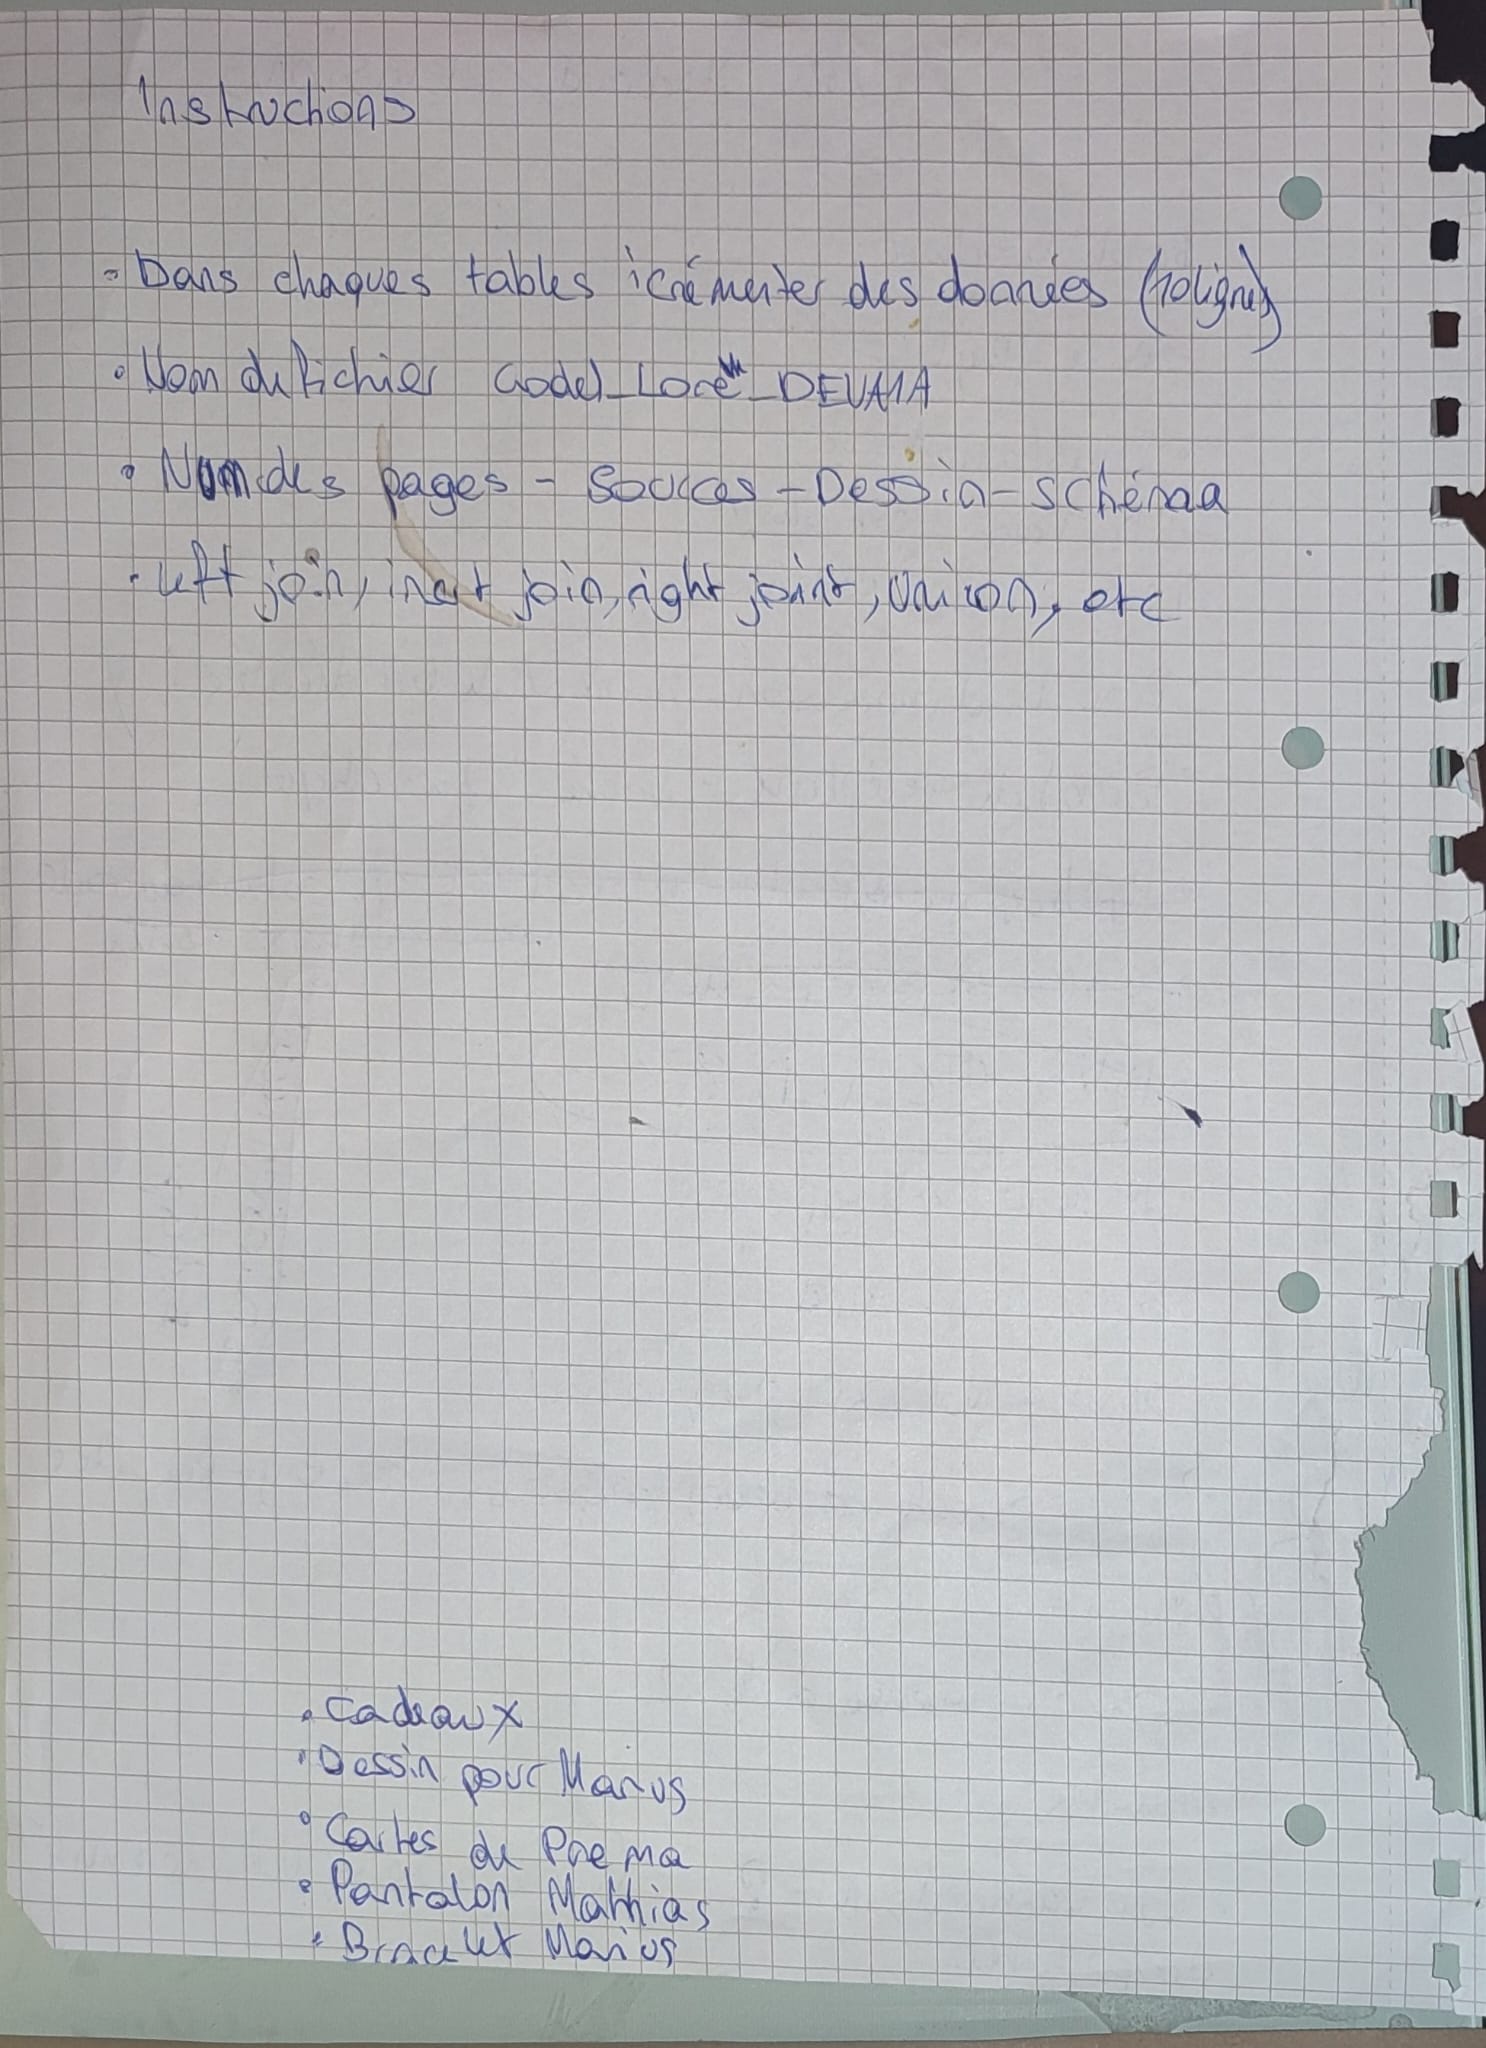 Instructions
- Dans chaques tables icrémenter des données (10 lignes)
• Nom du fichier Godel_Loré_DEVA1A
• Nom des pages - Sources - Dessin - schéma
• left join, inert join, right joint, Union, etc
• Cadeaux
• Dessin pour Marius
• Cartes de
• Pantalon Mathias
• Bracelet Marius